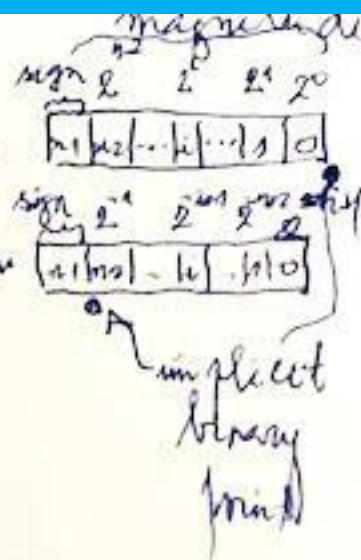 magnitude
sign 2^n-2 2^i 2^1 2^0
n-1 n-2 ... i ... 1 0
sign 2^-1
n-1 n-2 .. i . 1 0
implicit
binary
point